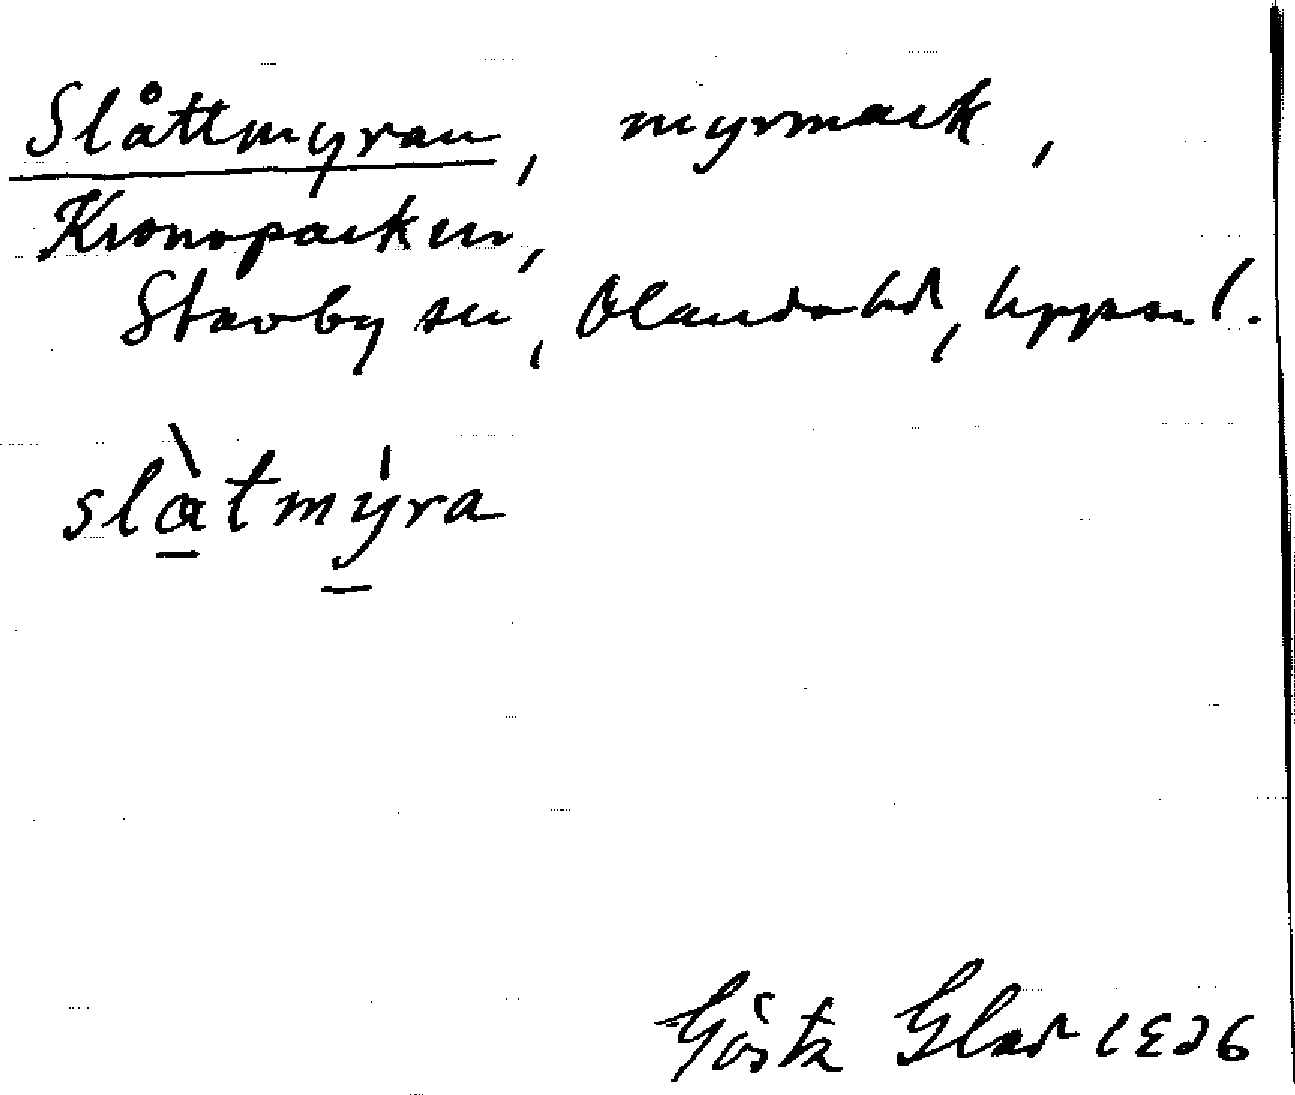 Slåttmyran, myrmark,
Kronoparken,
Stavby sn, Olands hd, Uppsa. l.
slàtmy̍ra
Gösta Glad 1936